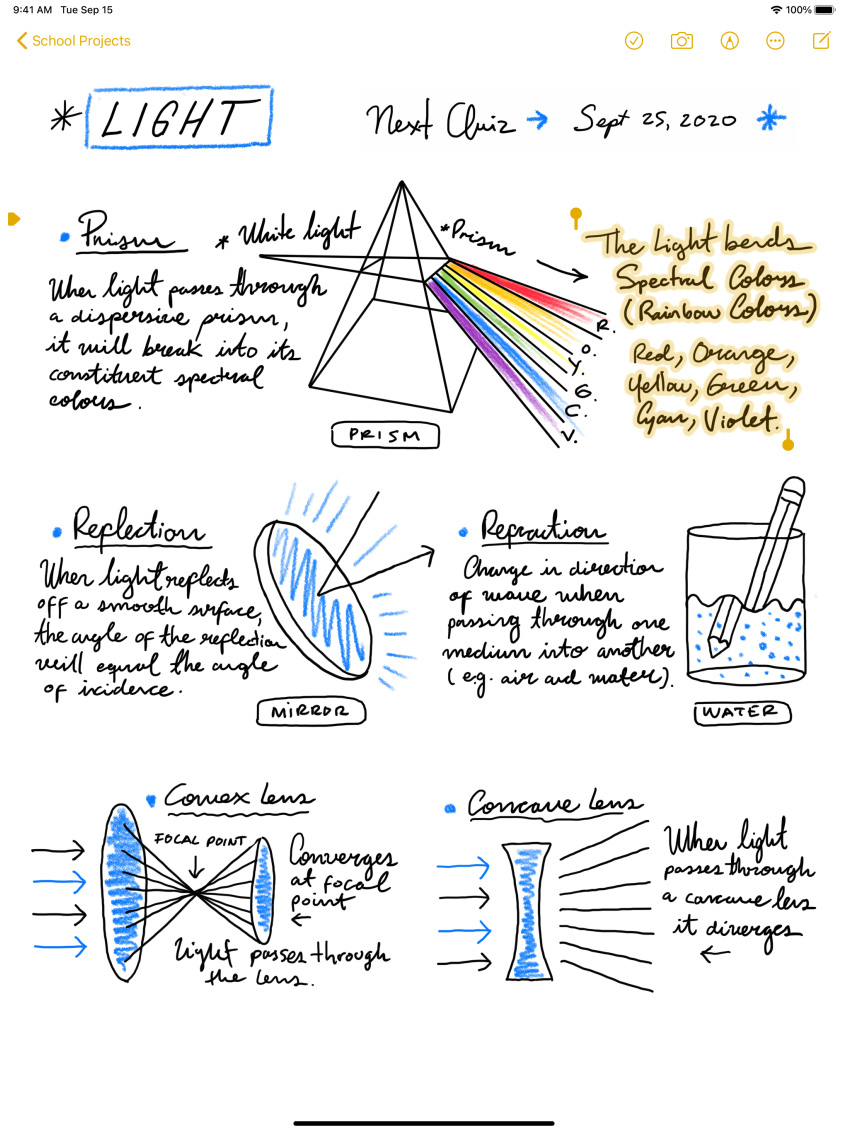 9:41 AM Tue Sep 15
100%
School Projects
* LIGHT
Next Quiz → Sept 25, 2020 *
• Prism
When light passes through
a dispersive prism,
it will break into its
constituent spectral
colours.
* White light
*Prism
R.
O.
Y.
G.
C.
V.
PRISM
The Light bends
Spectral Colors
(Rainbow Colours)
Red, Orange,
Yellow, Green,
Cyan, Violet.
• Reflection
When light reflects
off a smooth surface,
the angle of the reflection
will equal the angle
of incidence.
MIRROR
• Refraction
Change in direction
of wave when
passing through one
medium into another
(e.g. air and water).
WATER
• Convex Lens
FOCAL POINT
Converges
at focal
point
←
Light passes through
the lens.
• Concave Lens
When light
passes through
a concave lens
it diverges
←